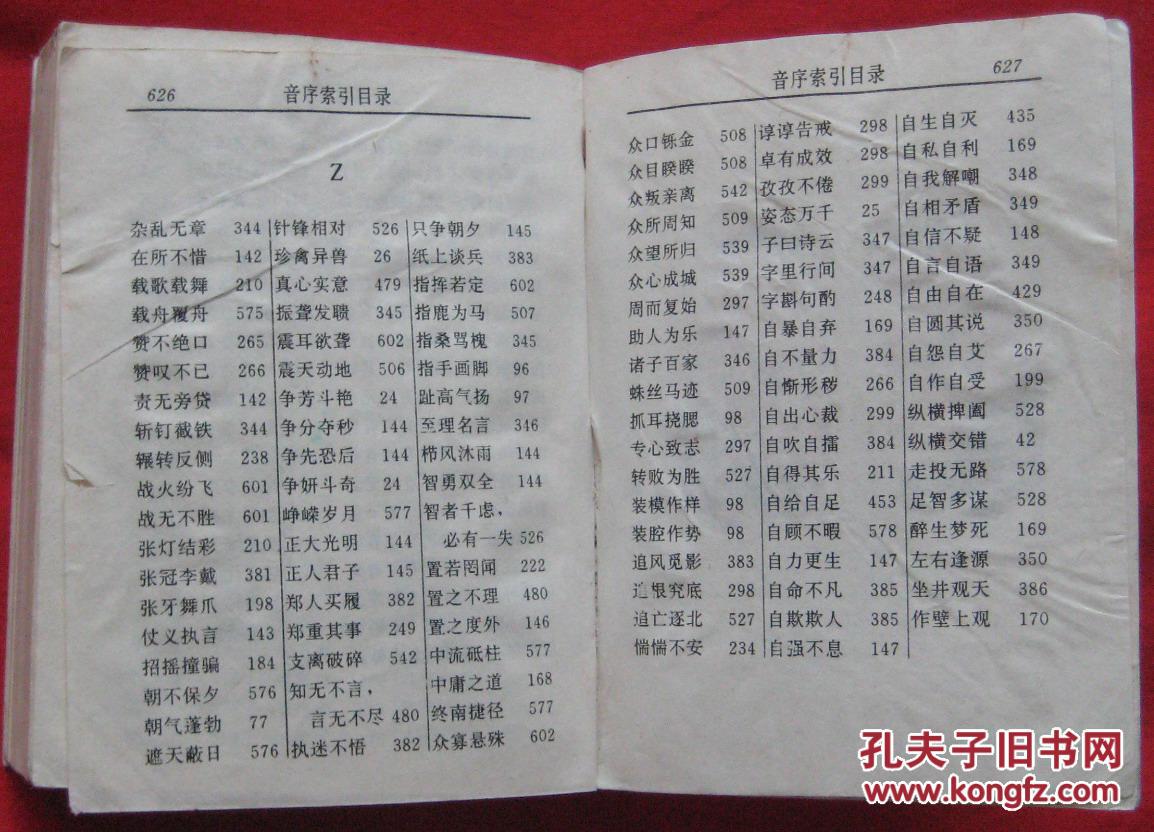 626 音序索引目录
Z
杂乱无章 344
在所不惜 142
载歌载舞 210
载舟覆舟 575
赞不绝口 265
赞叹不已 266
责无旁贷 142
斩钉截铁 344
辗转反侧 238
战火纷飞 601
战无不胜 601
张灯结彩 210
张冠李戴 381
张牙舞爪 198
仗义执言 143
招摇撞骗 184
朝不保夕 576
朝气蓬勃 77
遮天蔽日 576
针锋相对 526
珍禽异兽 26
真心实意 479
振聋发聩 345
震耳欲聋 602
震天动地 506
争芳斗艳 24
争分夺秒 144
争先恐后 144
争妍斗奇 24
峥嵘岁月 577
正大光明 144
正人君子 145
郑人买履 382
郑重其事 249
支离破碎 542
知无不言，
言无不尽 480
执迷不悟 382
只争朝夕 145
纸上谈兵 383
指挥若定 602
指鹿为马 507
指桑骂槐 345
指手画脚 96
趾高气扬 97
至理名言 346
栉风沐雨 144
智勇双全 144
智者千虑，
必有一失 526
置若罔闻 222
置之不理 480
置之度外 146
中流砥柱 577
中庸之道 168
终南捷径 577
众寡悬殊 602
音序索引目录 627
众口铄金 508
众目睽睽 508
众叛亲离 542
众所周知 509
众望所归 539
众心成城 539
周而复始 297
助人为乐 147
诸子百家 346
蛛丝马迹 509
抓耳挠腮 98
专心致志 297
转败为胜 527
装模作样 98
装腔作势 98
追风觅影 383
追根究底 298
追亡逐北 527
惴惴不安 234
谆谆告戒 298
卓有成效 298
孜孜不倦 299
姿态万千 25
子曰诗云 347
字里行间 347
字斟句酌 248
自暴自弃 169
自不量力 384
自惭形秽 266
自出心裁 299
自吹自擂 384
自得其乐 211
自给自足 453
自顾不暇 578
自力更生 147
自命不凡 385
自欺欺人 385
自强不息 147
自生自灭 435
自私自利 169
自我解嘲 348
自相矛盾 349
自信不疑 148
自言自语 349
自由自在 429
自圆其说 350
自怨自艾 267
自作自受 199
纵横捭阖 528
纵横交错 42
走投无路 578
足智多谋 528
醉生梦死 169
左右逢源 350
坐井观天 386
作壁上观 170
孔夫子旧书网
www.kongfz.com